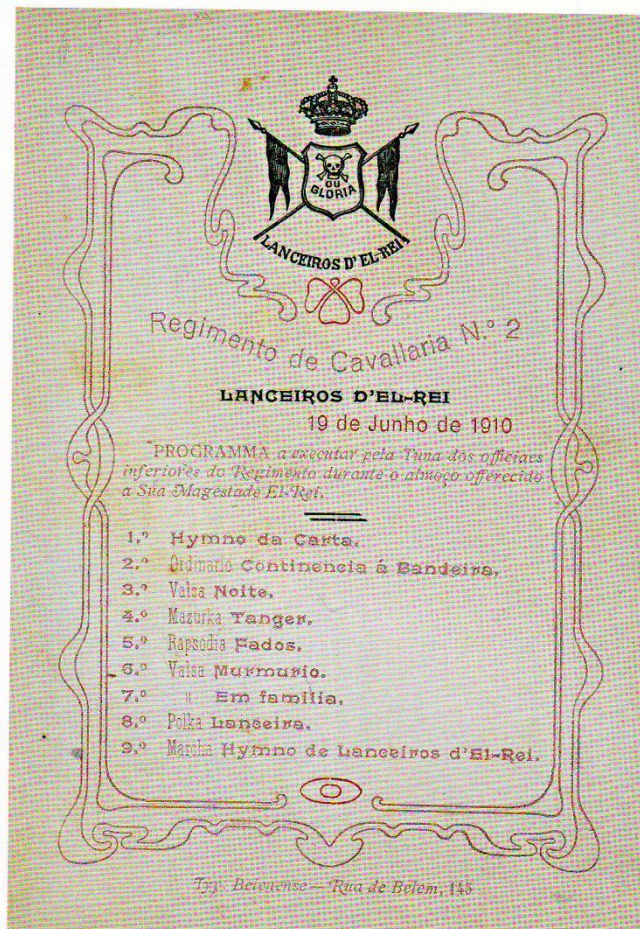 OU
GLORIA
LANCEIROS D'EL-REI
Regimento de Cavallaria N.º 2
LANCEIROS D'EL-REI
19 de Junho de 1910
PROGRAMMA a executar pela Tuna dos officiaes
inferiores do Regimento durante o almoço offerecido
a Sua Magestade El-Rei.
1.º Hymno da Carta.
2.º Ordinario Continencia á Bandeira.
3.º Valsa Noite.
4.º Mazurka Tanger.
5.º Rapsodia Fados.
6.º Valsa Murmurio.
7.º " Em familia.
8.º Polka Lanceira.
9.º Marcha Hymno de Lanceiros d'El-Rei.
Typ. Belenense — Rua de Belem, 145